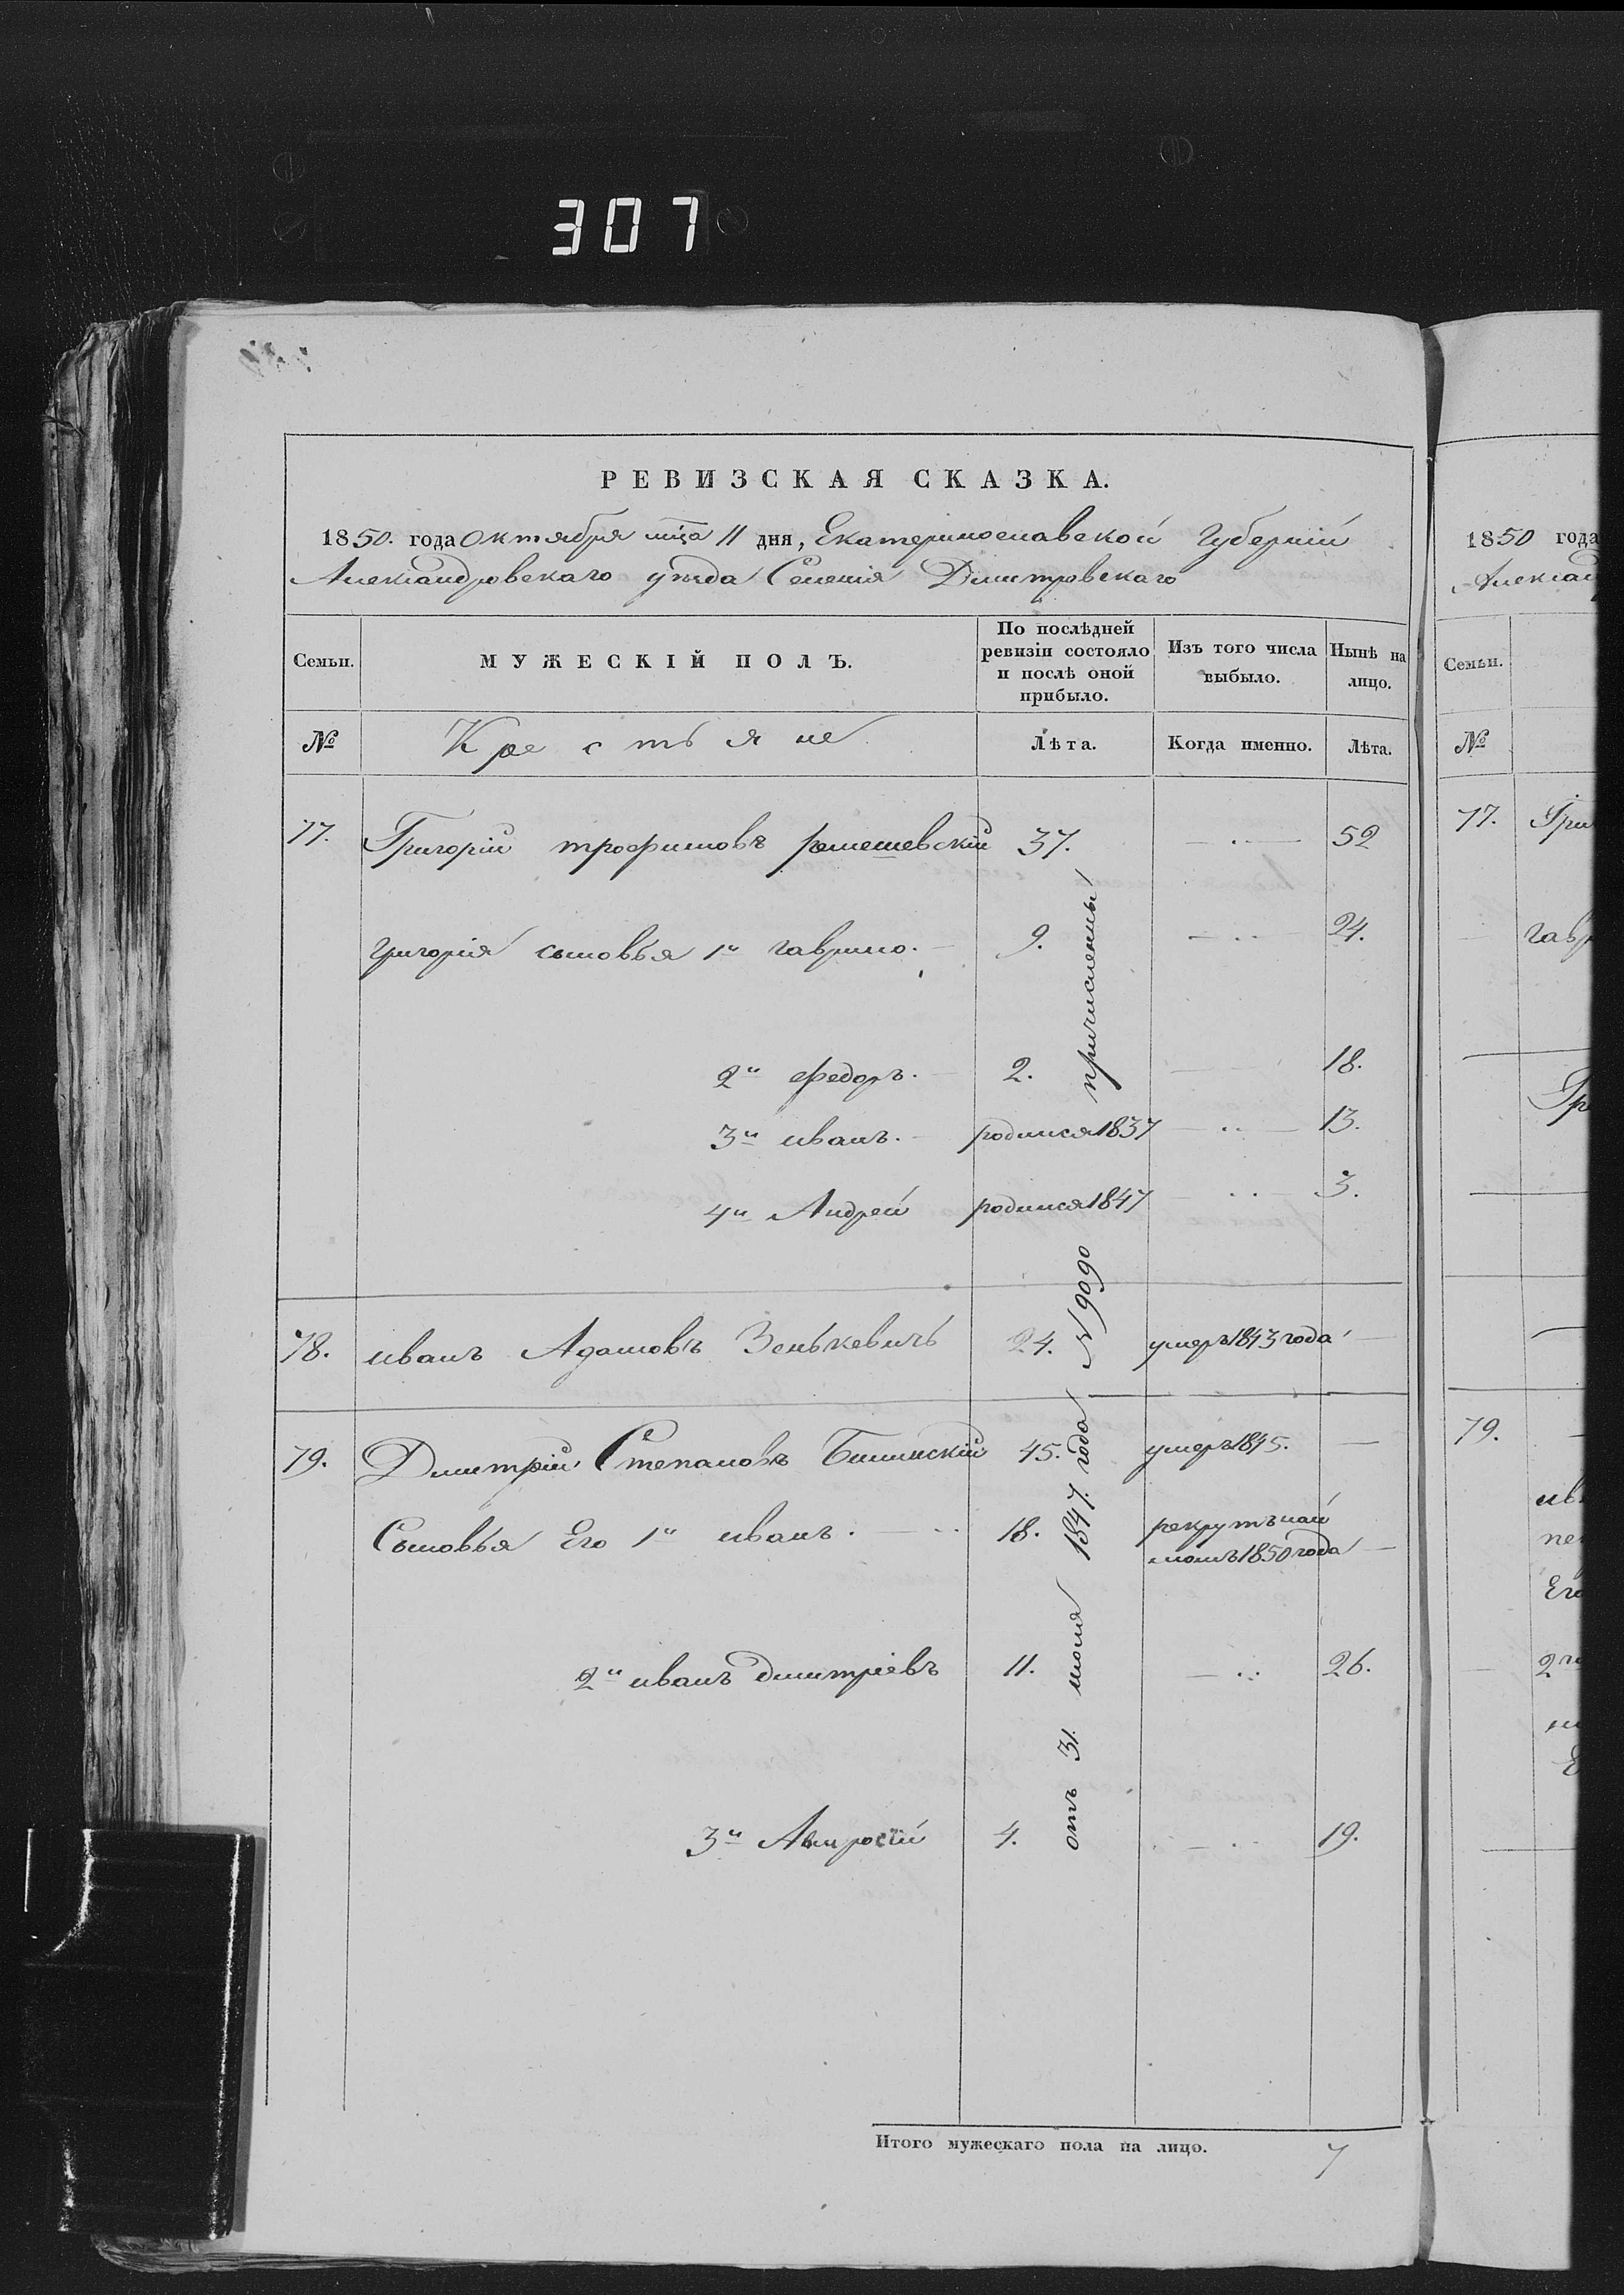 307
РЕВИЗСКАЯ СКАЗКА.
1850. года октября мца 11 дня, Екатеринославской Губерніи
Александровскаго уезда Селенія Дмитровскаго
Семьи. МУЖЕСКІЙ ПОЛЪ. По послѣдней ревизіи состояло и послѣ оной прибыло. Изъ того числа выбыло. Нынѣ на лицо.
№ Крестьяне Лѣта. Когда именно. Лѣта.
77. Григорій трофимовъ 37. — 52
григорія сыновья 1й гаврило. 9. — 24.
2й федоръ. 2. — 18.
3й иванъ. родился 1837 — 13.
4й Андрей родился 1847 — 3.
78. иванъ Адамовъ Зенькевичъ 24. умеръ 1843 года —
79. Дмитрій Степановъ 45. умеръ 1845. —
Сыновья Его 1й иванъ. 18. 1850 года —
2й иванъ дмитріевъ 11. — 26.
3й 4. — 19.
отъ 31. июля 1847. года № 9090 причислены
Итого мужескаго пола на лицо. 7
1850 года
Семьи.
№
77. Гри
гав
79.
Его